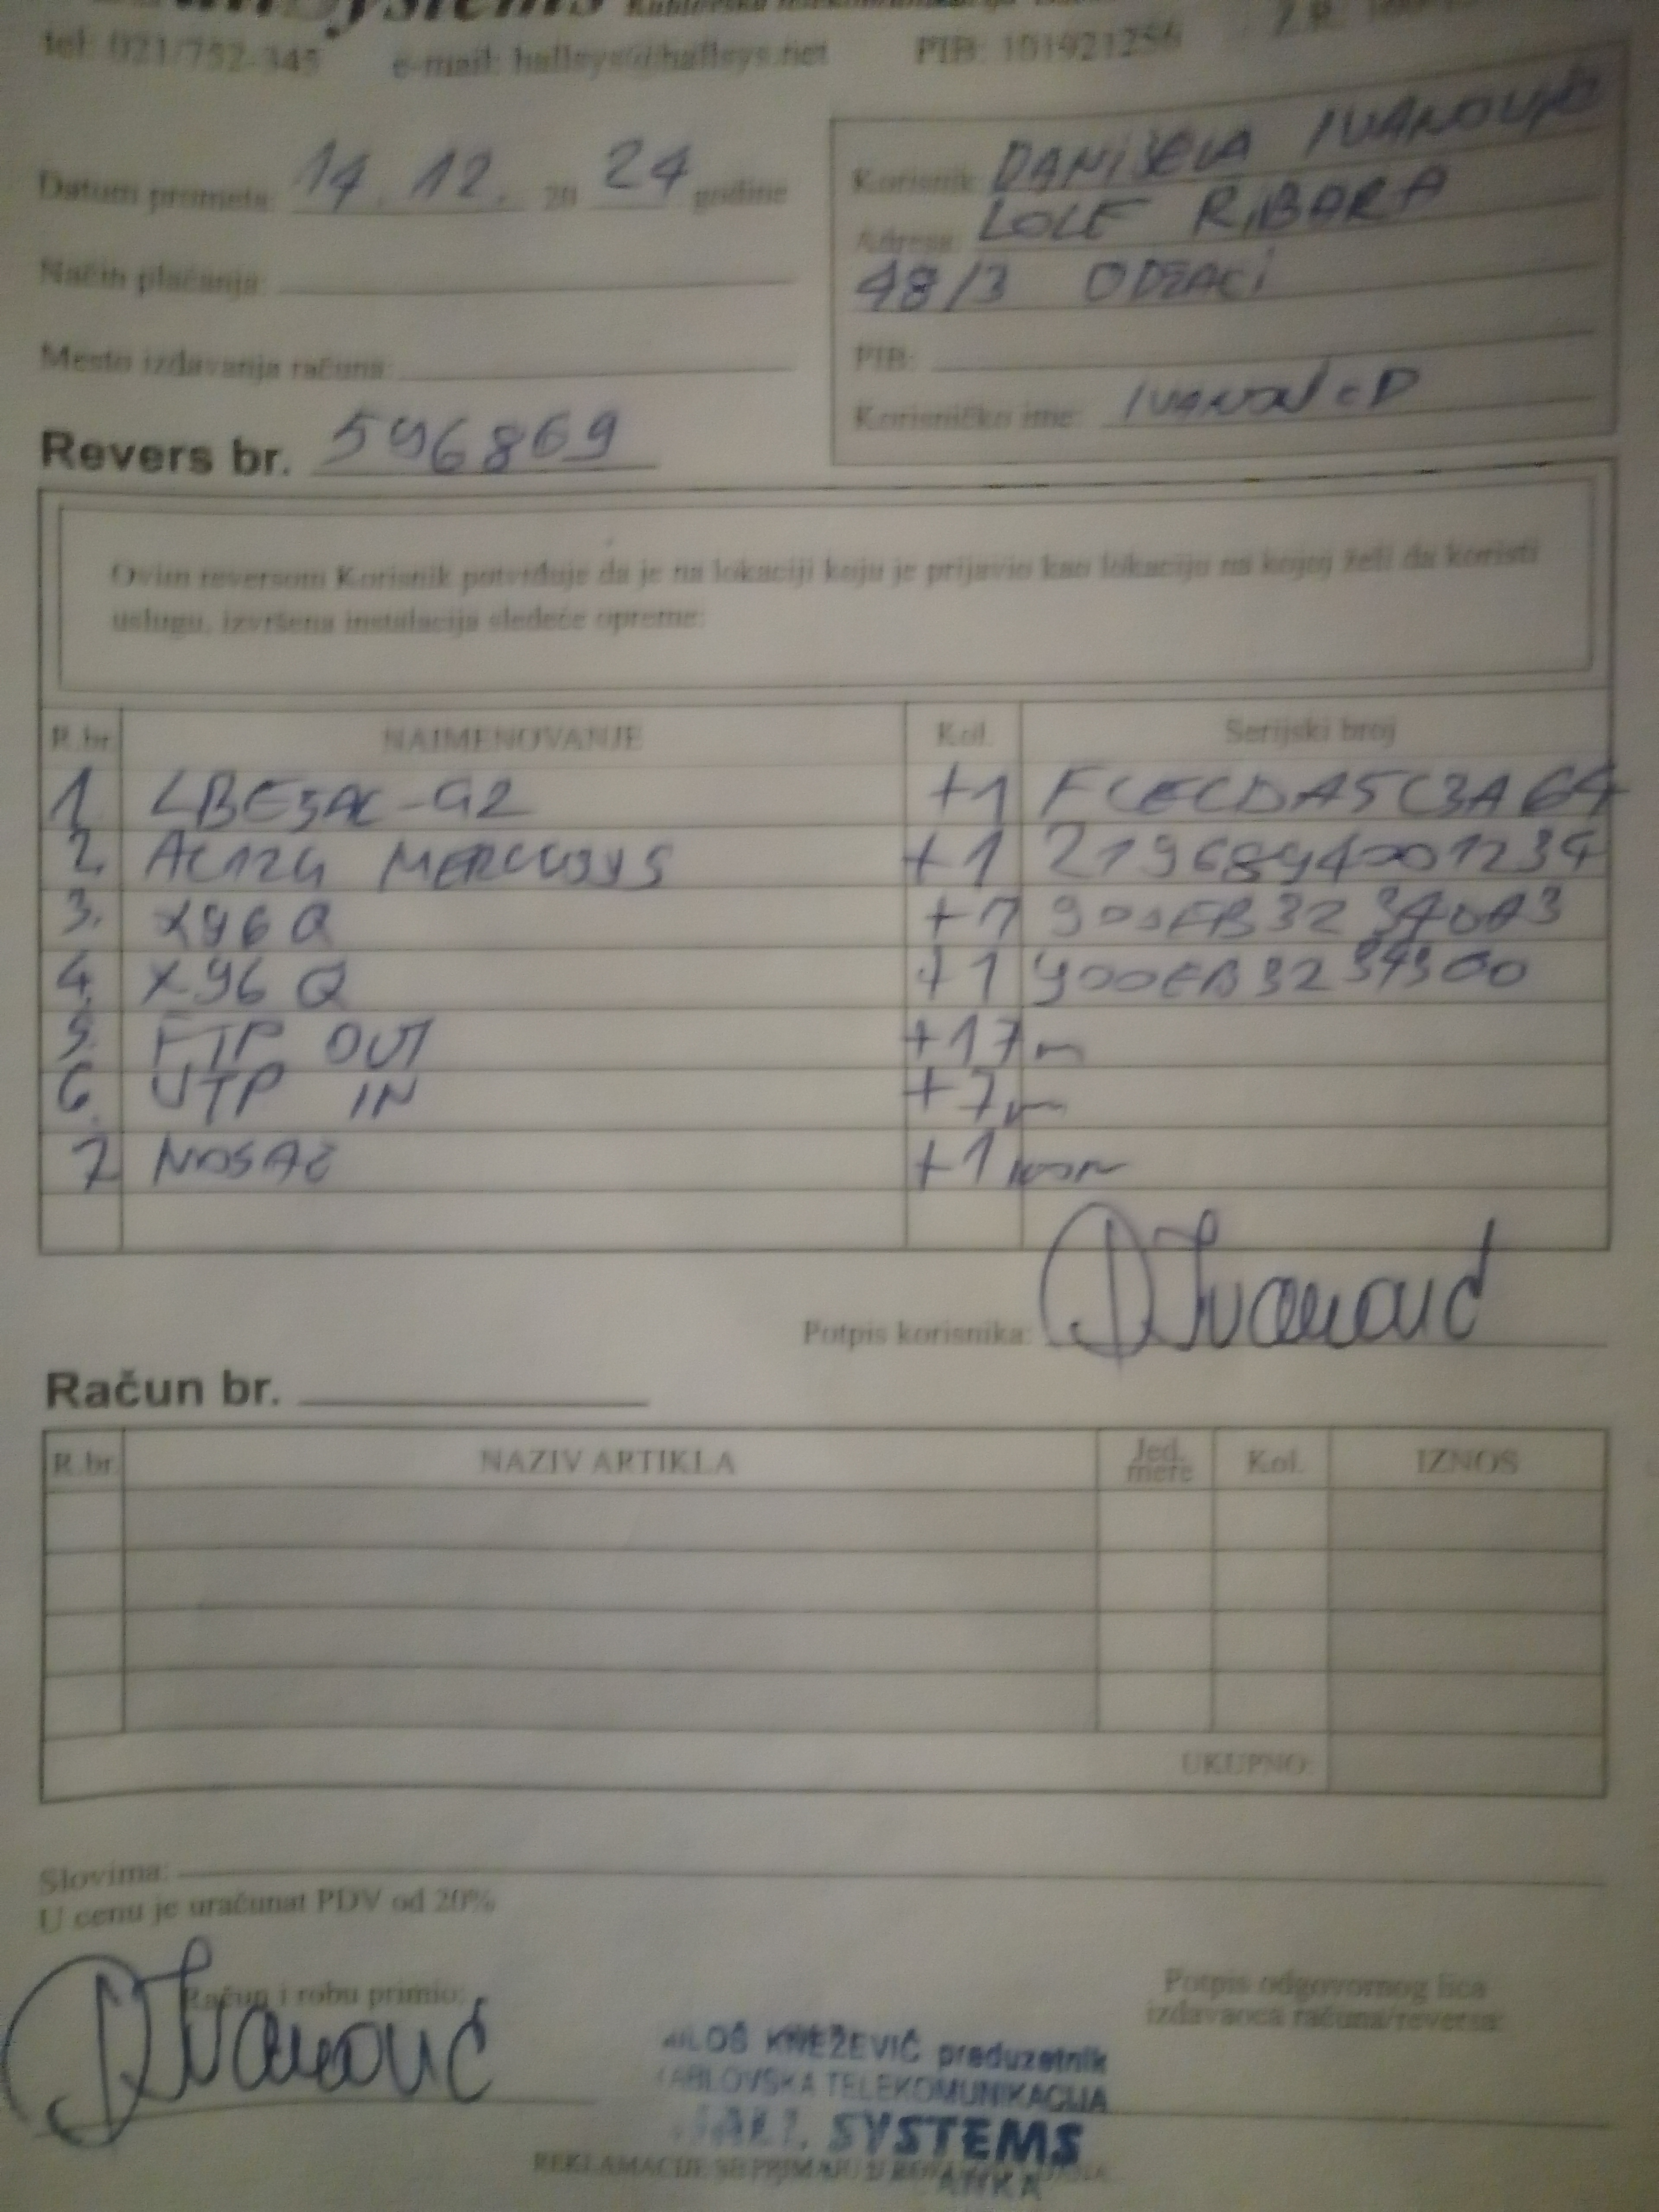 Systems
tel: 021/752-345 e-mail: hallsys@hallsys.net PIB: 101921256
Datum prometa: 14. 12. 20 24 godine
Način plaćanja:
Mesto izdavanja računa:
Korisnik: DANIJELA IVANOVIĆ
Adresa: LOLE RIBARA
48/3 ODZACI
PIB:
Korisničko ime:
Revers br. 596869
Ovim reversom Korisnik potvrđuje da je na lokaciji koju je prijavio kao lokaciju na kojoj želi da koristi
uslugu, izvršena instalacija sledeće opreme:
R.br. NAIMENOVANJE Kol. Serijski broj
1. LBE5AC-G2 +1 FCECDA5C3A64
2. AC12G MERCUSYS +1 2196894001234
3. X96 Q +1
4. X96 Q +1
5. FTP OUT +17m
6. UTP IN +7m
7. NOSAČ +1 kom
Potpis korisnika: DIvanović
Račun br.
R.br. NAZIV ARTIKLA Jed. mere Kol. IZNOS
UKUPNO:
Slovima:
U cenu je uračunat PDV od 20%
Račun i robu primio:
DIvanović
Potpis odgovornog lica
izdavaoca računa/reversa:
KNEŽEVIĆ preduzetnik
KABLOVSKA TELEKOMUNIKACIJA
SYSTEMS
REKLAMACIJE SE PRIMAJU U